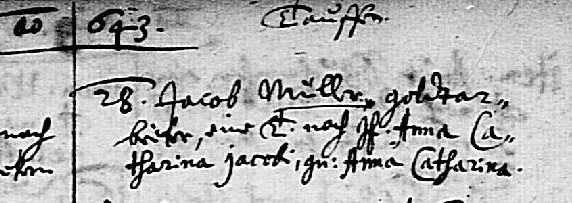 643. Tauffen.
28. Jacob Müller, goldtar„
beiter, eine T. nach Jf. Anna Ca„
nach
tharina Jacobi, gn: Anna Catharina.